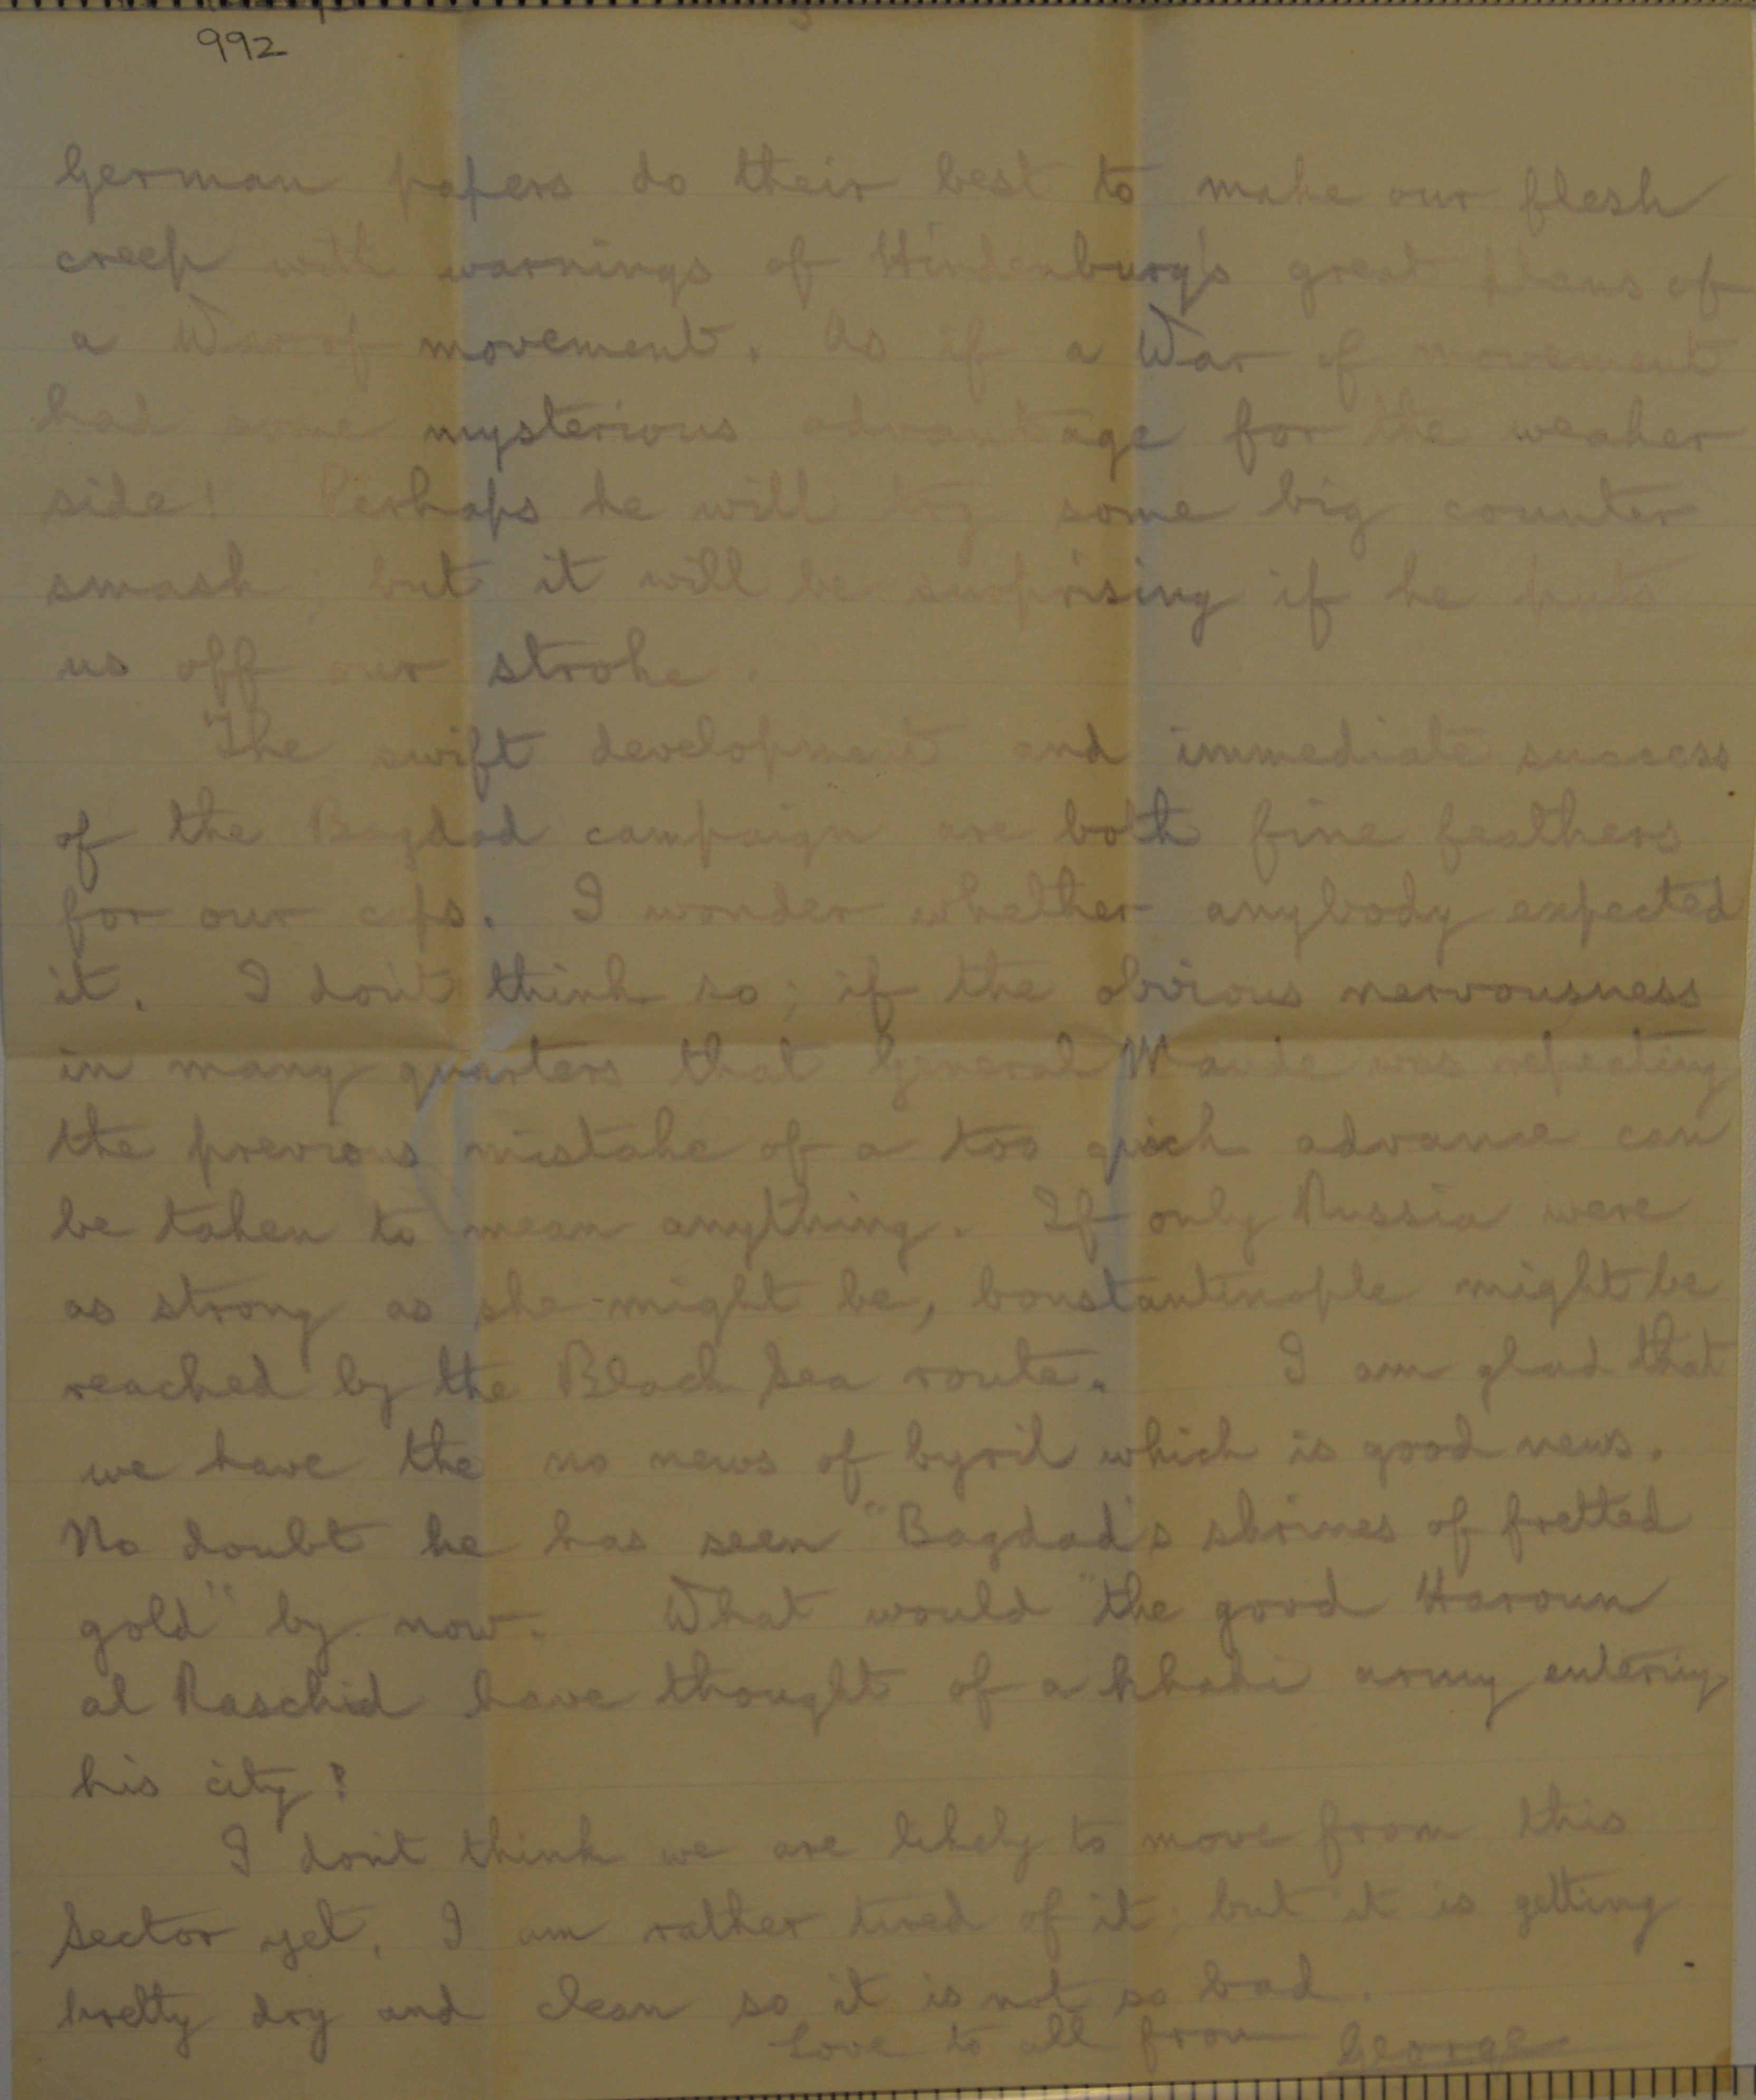 992
German papers do their best to make our flesh
creep with warnings of Hindenburg's great plans of
a War of movement. As if a War of movement
had some mysterious advantage for the weaker
side! Perhaps he will try some big counter
smash, but it will be surprising if he puts
us off our stroke.
The swift development and immediate success
of the Bagdad campaign are both fine feathers
for our caps. I wonder whether anybody expected
it. I don't think so; if the obvious nervousness
in many quarters that General Maude was repeating
the previous mistake of a too quick advance can
be taken to mean anything. If only Russia were
as strong as she might be, Constantinople might be
reached by the Black Sea route. I am glad that
we have the no news of Cyril which is good news.
No doubt he has seen "Bagdad's shrines of fretted
gold" by now. What would "the good Haroun
al Raschid have thought of a khaki army entering
his city?
I don't think we are likely to move from this
Sector yet. I am rather tired of it; but it is getting
pretty dry and clean so it is not so bad.
Love to all from George